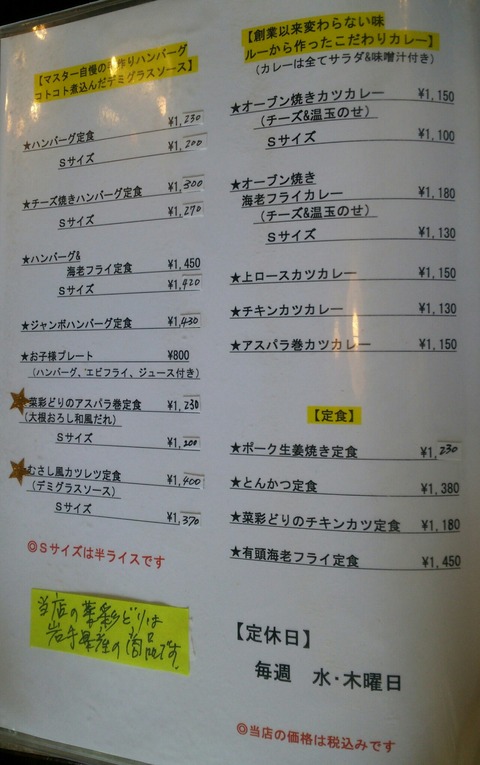 【マスター自慢の手作りハンバーグ
コトコト煮込んだデミグラスソース】
★ハンバーグ定食 ¥1,230
Sサイズ ¥1,200
★チーズ焼きハンバーグ定食 ¥1,300
Sサイズ ¥1,270
★ハンバーグ&
海老フライ定食 ¥1,450
Sサイズ ¥1,420
★ジャンボハンバーグ定食 ¥1,430
★お子様プレート ¥800
(ハンバーグ、エビフライ、ジュース付き)
★菜彩どりのアスパラ巻定食 ¥1,230
(大根おろし和風だれ)
Sサイズ ¥1,200
むさし風カツレツ定食 ¥1,400
(デミグラスソース)
Sサイズ ¥1,370
◎Sサイズは半ライスです
当店の菜彩どりは
岩手県産の商品です。
【創業以来変わらない味
ルーから作ったこだわりカレー】
(カレーは全てサラダ&味噌汁付き)
★オーブン焼きカツカレー ¥1,150
(チーズ&温玉のせ)
Sサイズ ¥1,100
★オーブン焼き
海老フライカレー ¥1,180
(チーズ&温玉のせ)
Sサイズ ¥1,130
★上ロースカツカレー ¥1,150
★チキンカツカレー ¥1,130
★アスパラ巻カツカレー ¥1,150
【定食】
★ポーク生姜焼き定食 ¥1,230
★とんかつ定食 ¥1,380
★菜彩どりのチキンカツ定食 ¥1,180
★有頭海老フライ定食 ¥1,450
【定休日】
毎週 水・木曜日
◎当店の価格は税込みです